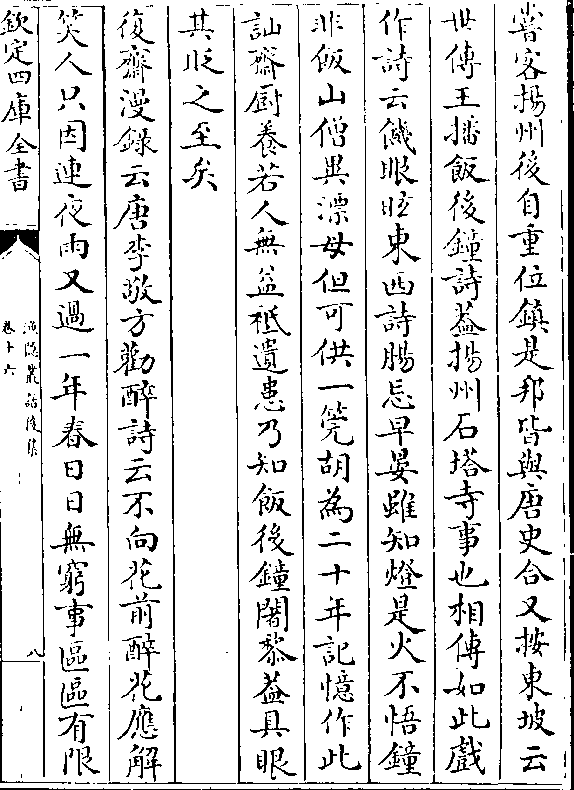 嘗客揚州後自重位鎮是邦皆與唐史合又按東坡云
世傳王播飯後鐘詩葢揚州石塔寺事也相傳如此戲
作詩云饑眼眩東西詩腸忘早晏雖知燈是火不悟鐘
非飯山僧異漂母但可供一筦胡為二十年記憶作此
訕齋厨養若人無益秪遺患乃知飯後鐘闍黎葢具眼
其貶之至矣
復齋漫録云唐李敬方勸醉詩云不向花前醉花應解
笑人只因連夜雨又過一年春日日無窮事區區有限
欽定四庫全書
漁隱叢話後集
卷十六
八